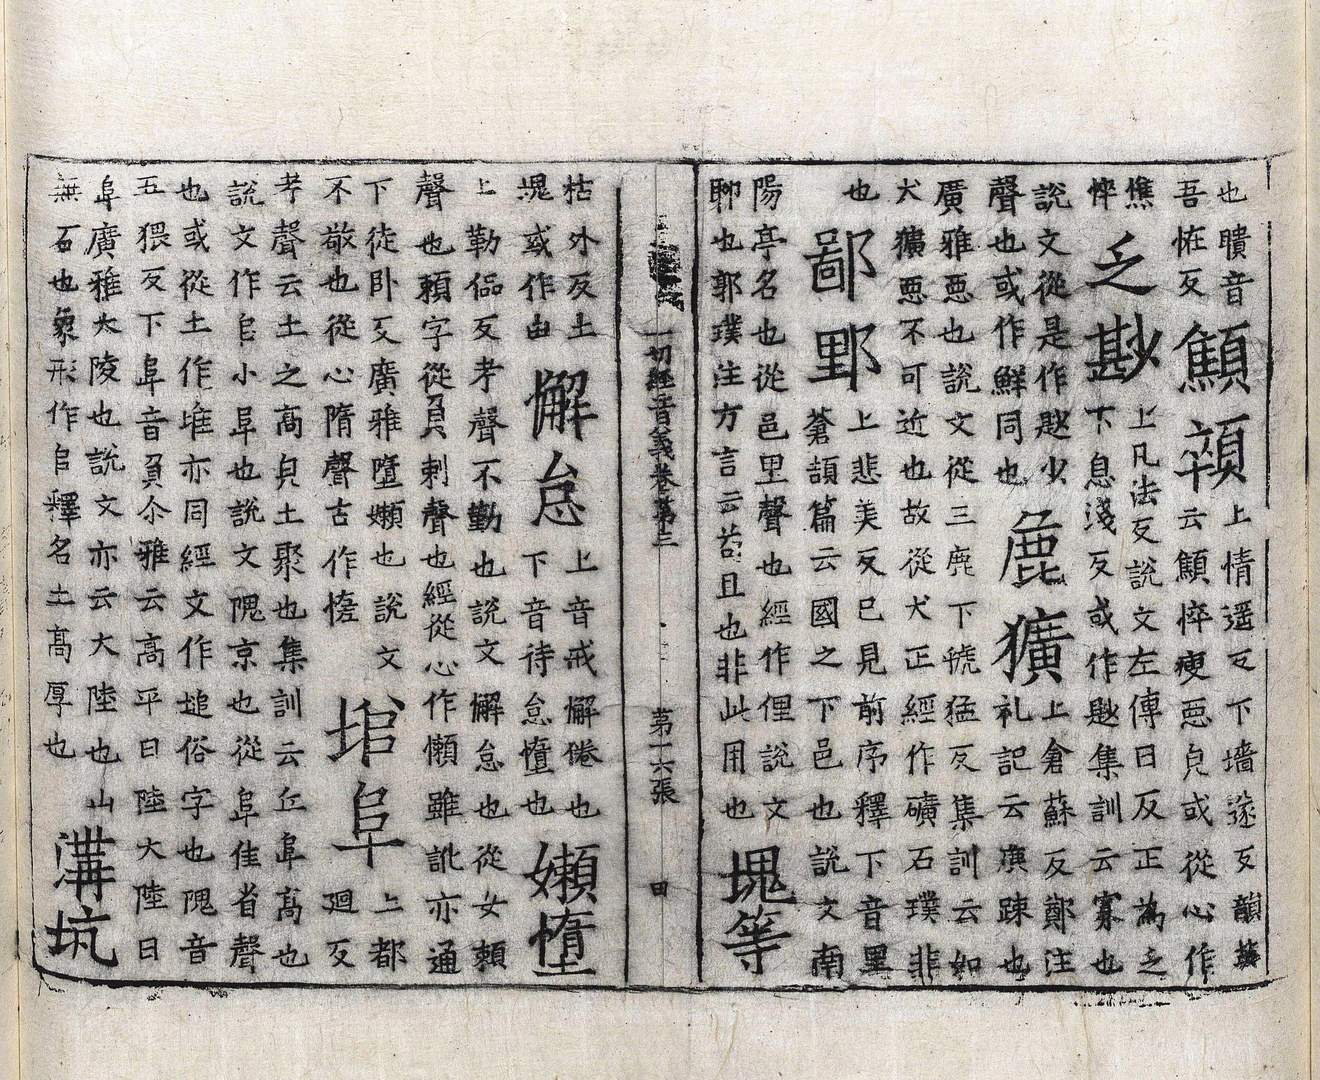 也瞶音
吾恠反
顦顇
上情遥反下墻遂反韻英
云顦悴瘦惡皃或從心作
憔
悴
乏尠
上凡法反說文左傳曰反正為乏
下息淺反或作尟集訓云寡也
說文從是作尟少
聲也或作鮮同也
麁獷
上倉蘇反鄭注
礼記云麁踈也
廣雅惡也說文從三鹿下虢猛反集訓云如
犬獷惡不可近也故從犬正經作礦石璞非
也
鄙𨛋
上悲美反已見前序釋下音里
蒼頡篇云國之下邑也說文南
陽亭名也從邑里聲也經作俚說文
聊也郭璞注方言云苟且也非此用也
塊等
一切經音義卷第三
第十六張
田
枯外反土
塊或作凷
懈怠
上音戒懈倦也
下音待怠墮也
嬾墮
上勒侃反考聲不勤也說文懈怠也從女賴
聲也賴字從負剌聲也經從心作懶雖訛亦通
下徒卧反廣雅墮嬾也說文
不敬也從心隋聲古作惰
堆阜
上都
迴反
考聲云土之高皃土聚也集訓云丘阜高也
說文作𠂤小阜也說文隗京也從阜隹省聲
也或從土作堆亦同經文作塠俗字也隗音
五猥反下阜音負尒雅云高平曰陸大陸曰
阜廣雅大陵也說文亦云大陸也山
無石也象形作𠂤釋名土高厚也
溝坑